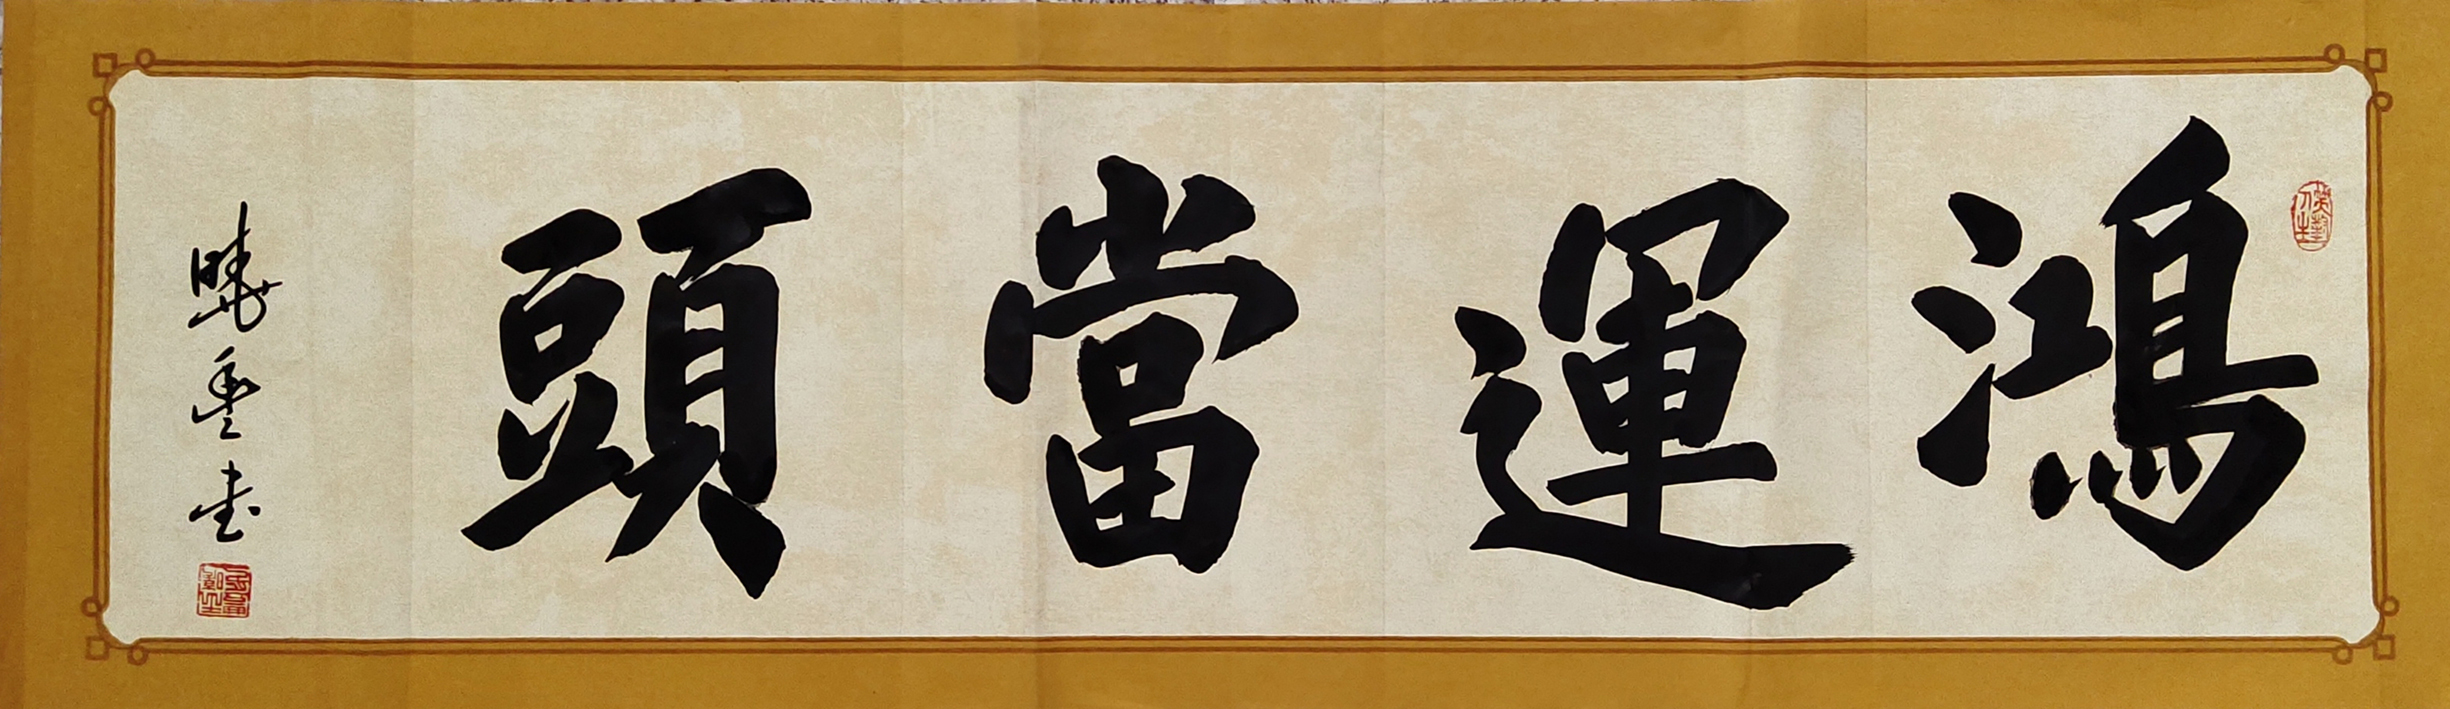 鴻運當頭
曉雲書